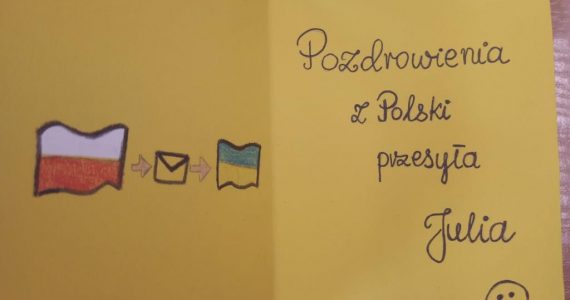 Pozdrowienia
z Polski
przesyła
Julia